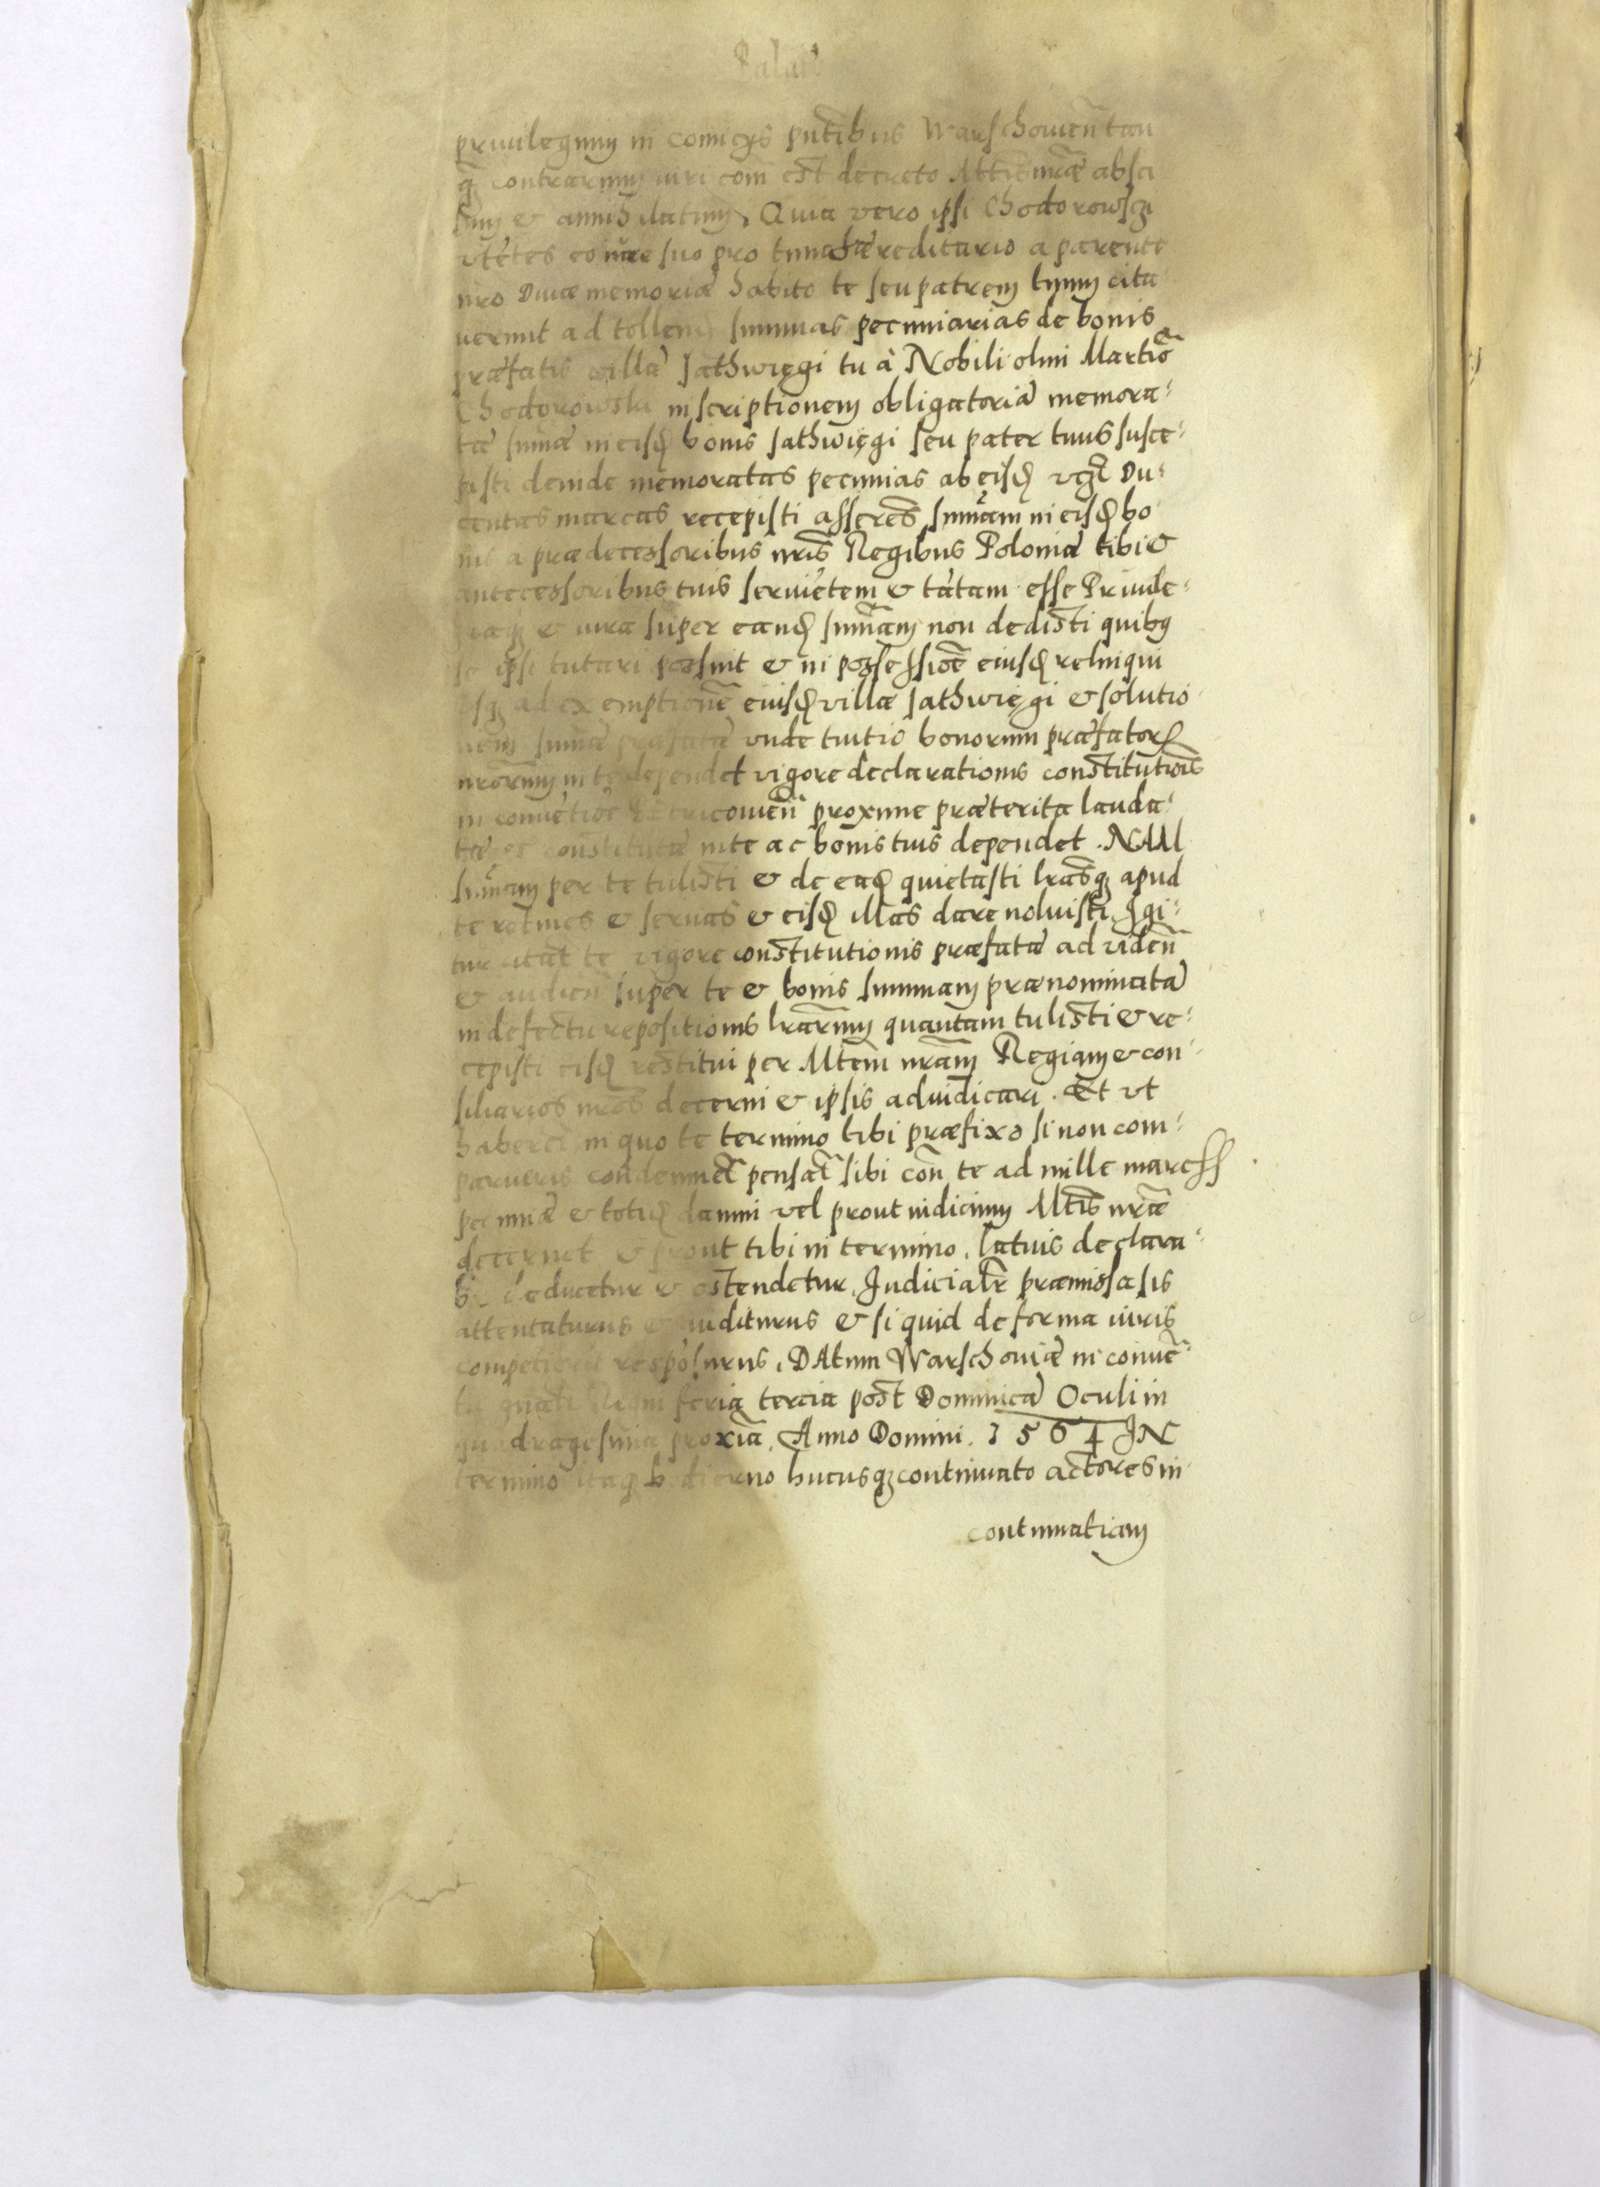 Palat
privilegium in comicijs pntibus Warschowien tan
q contrarium iuri com est decreto Mttis nrae absci
sum & annihilatum, Quia vero ipsi Chodorowsczi
vtetes eo iure suo pro tunc haereditario a parente
nro Divae memoriae habito te seu patrem tuum cita
verunt ad tollen summas pecuniarias de bonis
praefatis villa Jathwięgi tu a Nobili olim Martio
Chodorowski inscriptionem obligatoria memora-
tae sumae in eisd bonis Jathwięgi seu pater tuus susce-
pisti deinde memoratas pecunias ab eisd vcz Du-
centas marcas recepisti asseres sumam in eisd bo
nis a praedecessoribus nris Regibus Poloniae tibi &
antecessoribus tuis servietem & tatam esse Privile-
giaq & iura super eand sumam non dedisti quibus
se ipsi tutari possint & in possessioe eiusd relinqui
vsq ad exemptione eiusd villae Jathwięgi & solutio
nem sumae praefatae vnde tuitio bonorum praefator
nrorum in te dependet vigore declarationis constitutiois
in conuetioe Petricouien proxime praeterita lauda-
tae et constitutae in te ac bonis tuis dependet. NAM
sumam per te tulisti & de ead quietasti lrasq apud
te retines & servas & eisd illas dare noluisti, Igi-
tur citat te vigore constitutionis praefatae ad viden
& audien super te & bonis summam praenominata
in defectu repositionis lrarum quantam tulisti & re-
cepisti eisd restitui per Mtem nram Regiam & con-
siliarios nros decerni & ipsis adiudicari. Et vt
haberet in quo te termino tibi praefixo si non com-
parueris condemnet pensat sibi con te ad mille marcss
pecuniae & totid damni vel prout iudicium Mtis nrae
decernet & prout tibi in termino, latius declara-
bit deducetur & ostendetur, Judicialr praemissa sis
attentaturus & auditurus & si quid de forma iuris
competierit resposurus, DAtum Warschoviae in conue-
tu gnali Regni feria tercia post Dominica Oculi in
quadragesima proxia, Anno Domini, 1564 IN
termino itaq hodierno hucusq continuato actores in
contumatiam